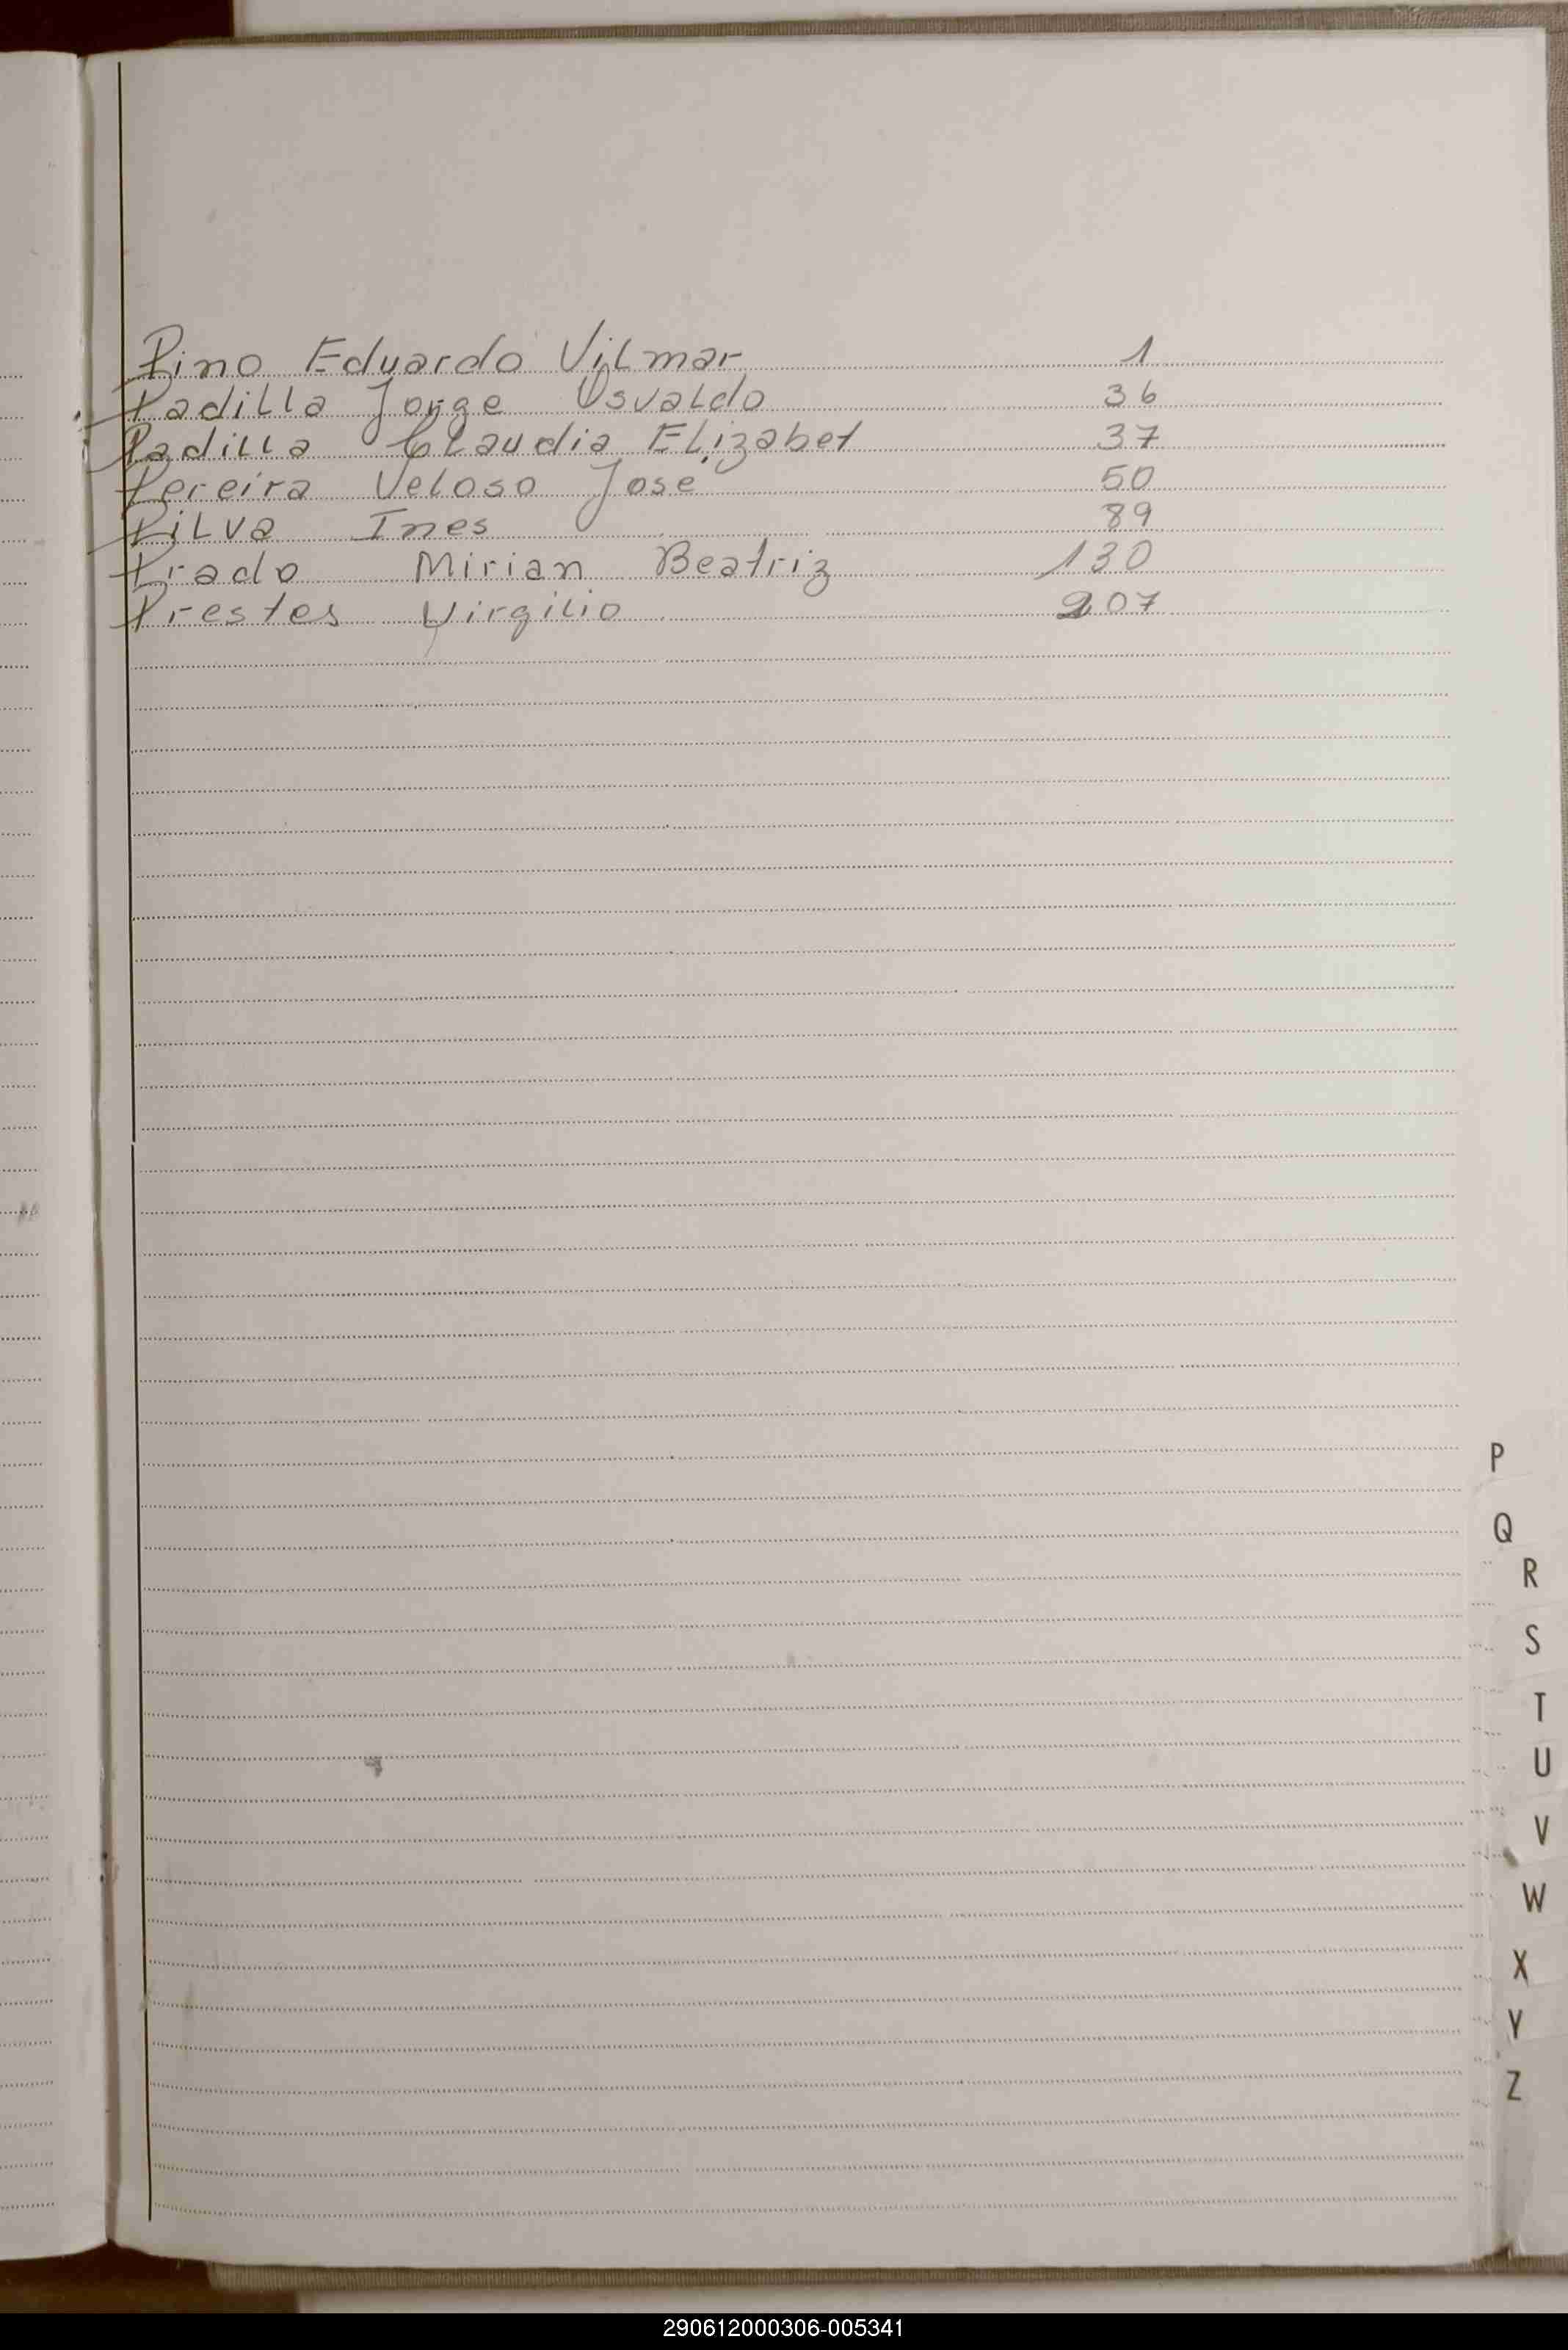 Pino Eduardo Vilmar 1
Padilla Jorge Osvaldo 36
Padilla Claudia Elizabet 37
Pereira Veloso Jose 50
Pilva Ines 89
Prado Mirian Beatriz 130
Prestes Virgilio 207
P
Q
R
S
T
U
V
W
X
Y
Z
290612000306-005341